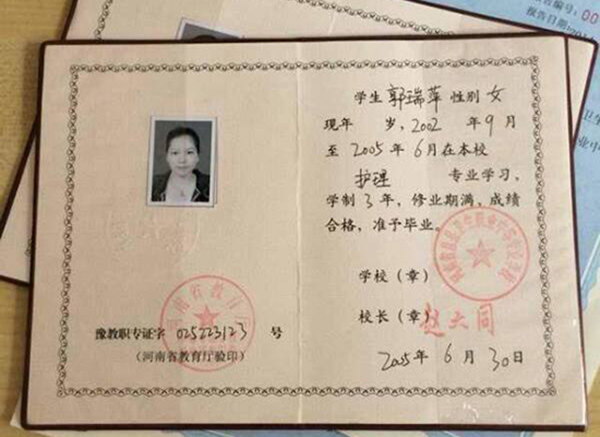 学生 郭瑞萍 性别 女
现年 岁，2002 年 9 月
至 2005 年 6 月在本校
护理 专业学习，
学制 3 年，修业期满，成绩
合格，准予毕业。
学校（章）
校长（章）赵六同
2005 年 6 月 30 日
河南省教育厅
豫教职专证字 025223123 号
（河南省教育厅验印）
报告日期:201